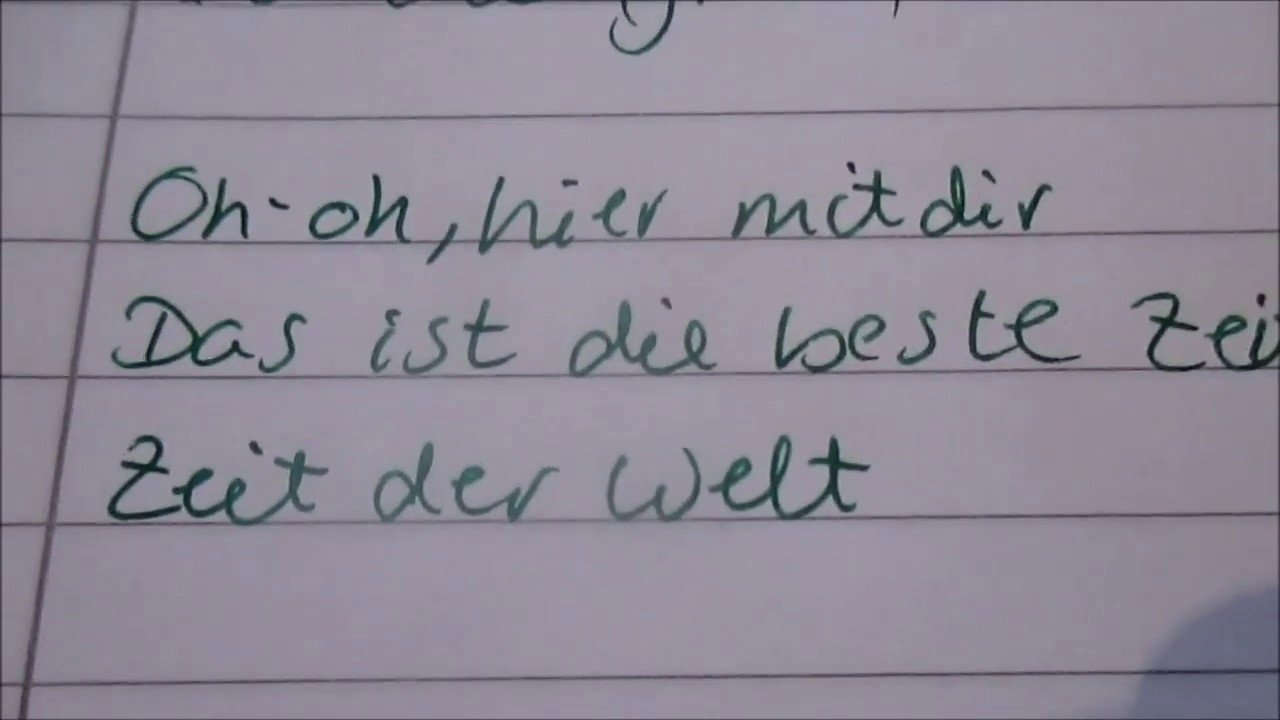 Oh-oh, hier mit dir
Das ist die beste Zei
Zeit der Welt